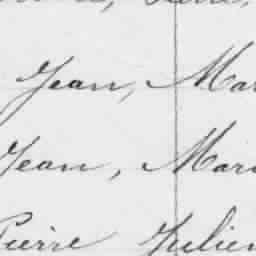 Jean, Mar
Jean, Mari
Pierre Julien